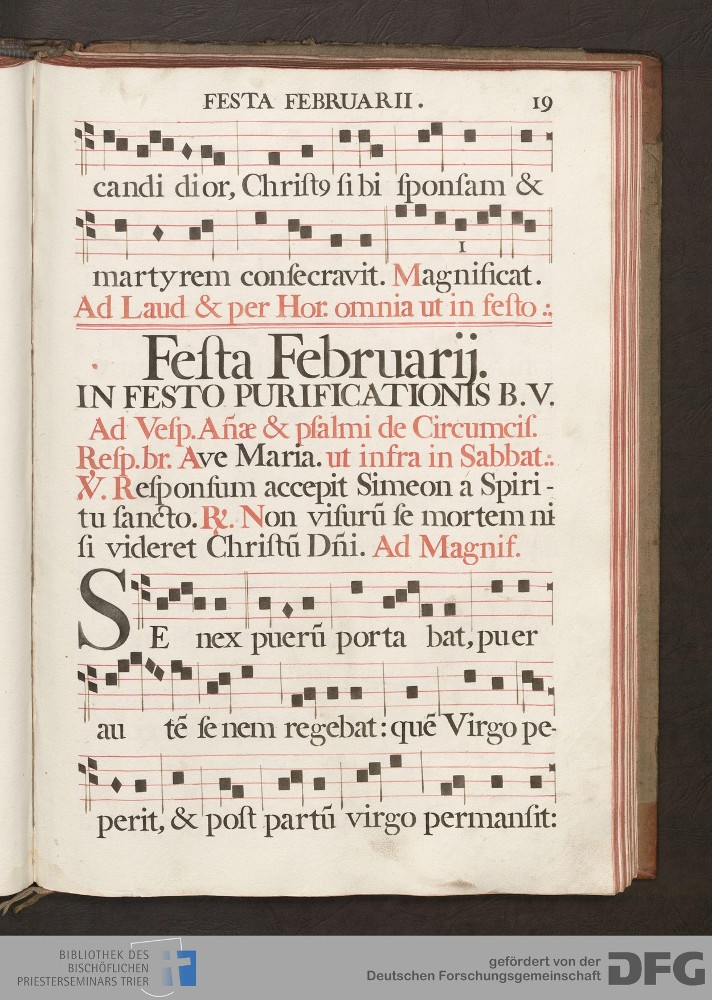 FESTA FEBRUARII. 19
candi dior, Chriſtꝯ ſi bi ſponſam &
1
martyrem conſecravit. Magnificat.
Ad Laud & per Hor. omnia ut in feſto .:
Feſta Februarij.
IN FESTO PURIFICATIONIS B.V.
Ad Veſp. Añæ & pſalmi de Circumciſ.
Reſp. br. Ave Maria. ut infra in Sabbat.:
℣. Reſponſum accepit Simeon a Spiri-
tu ſancto. ℟. Non viſurū ſe mortem ni-
ſi videret Chriſtū Dñi. Ad Magnif.
SE nex puerū porta bat, puer
au tē ſe nem regebat: quē Virgo pe-
perit, & poſt partū virgo permanſit:
BIBLIOTHEK DES
BISCHÖFLICHEN
PRIESTERSEMINARS TRIER
gefördert von der
Deutschen Forschungsgemeinschaft DFG